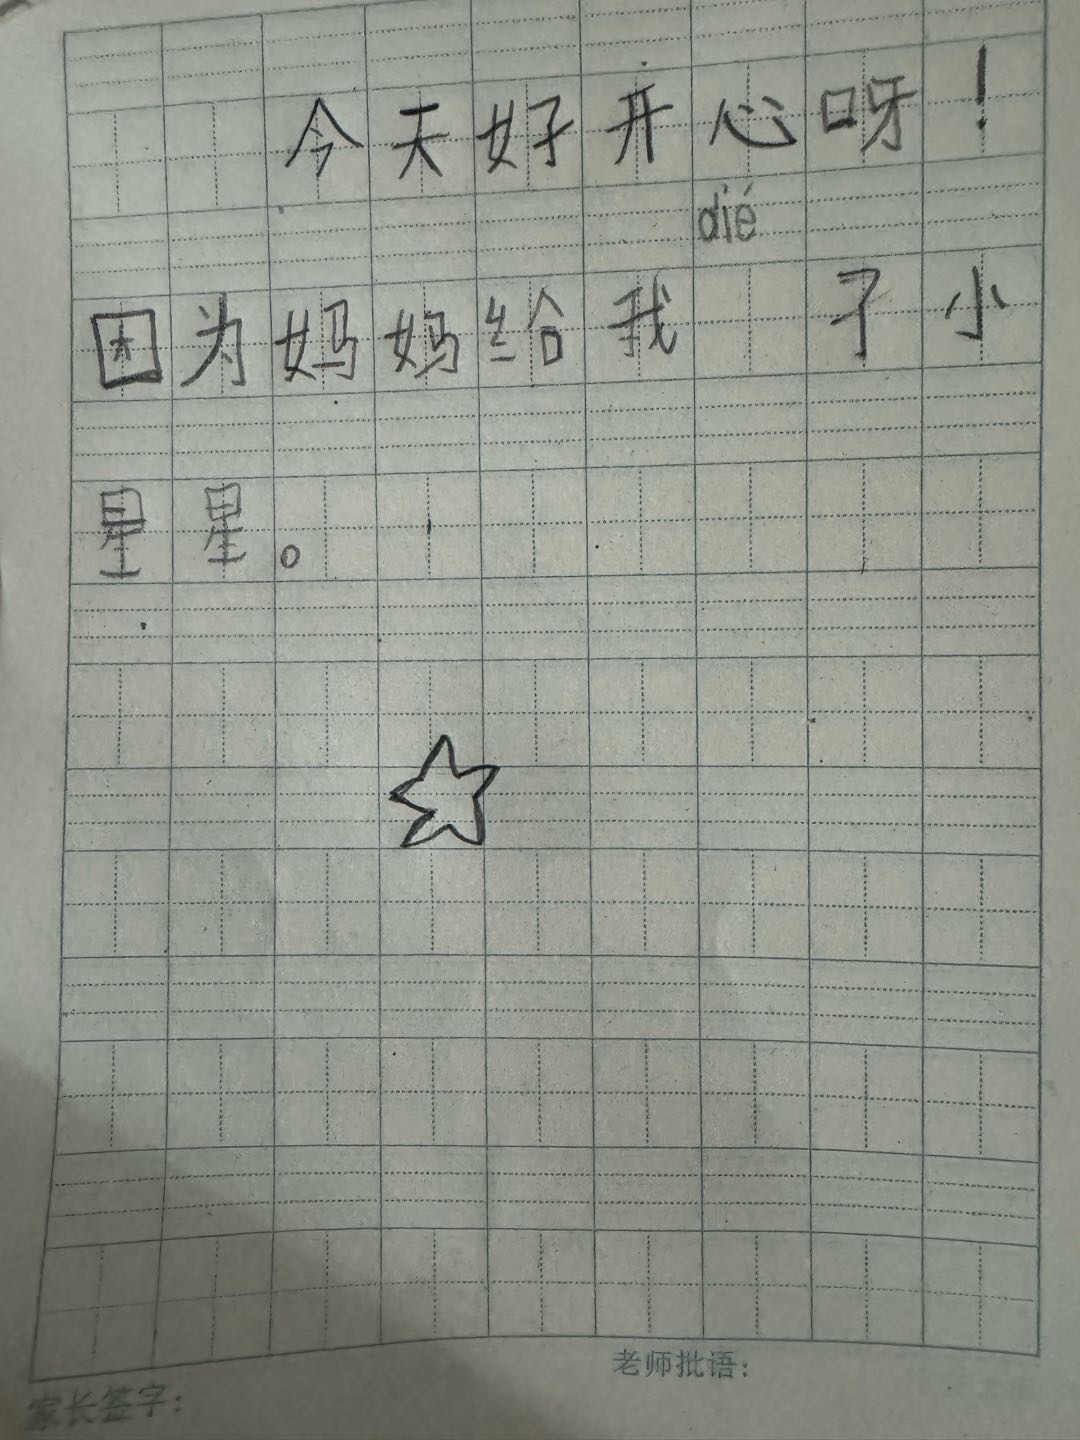 今天好开心呀！
dié
因为妈妈给我 孑小
星星。
老师批语：
家长签字：